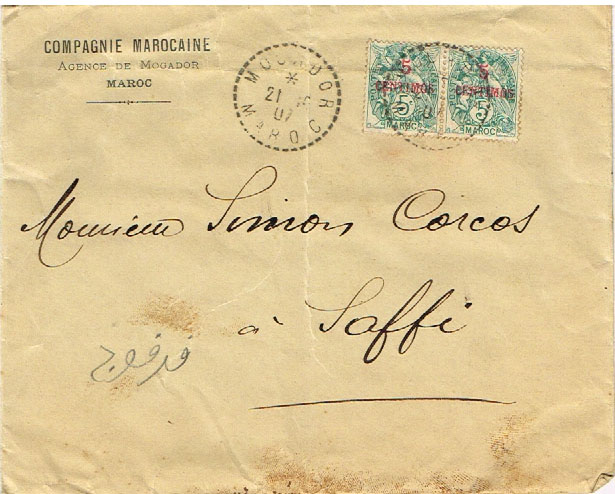 COMPAGNIE MAROCAINE
AGENCE DE MOGADOR
MAROC
MOGADOR
21
07
MAROC
5 CENTIMOS
5
MAROC
5 CENTIMOS
5
MAROC
Monsieur Simon Corcos
à Saffi